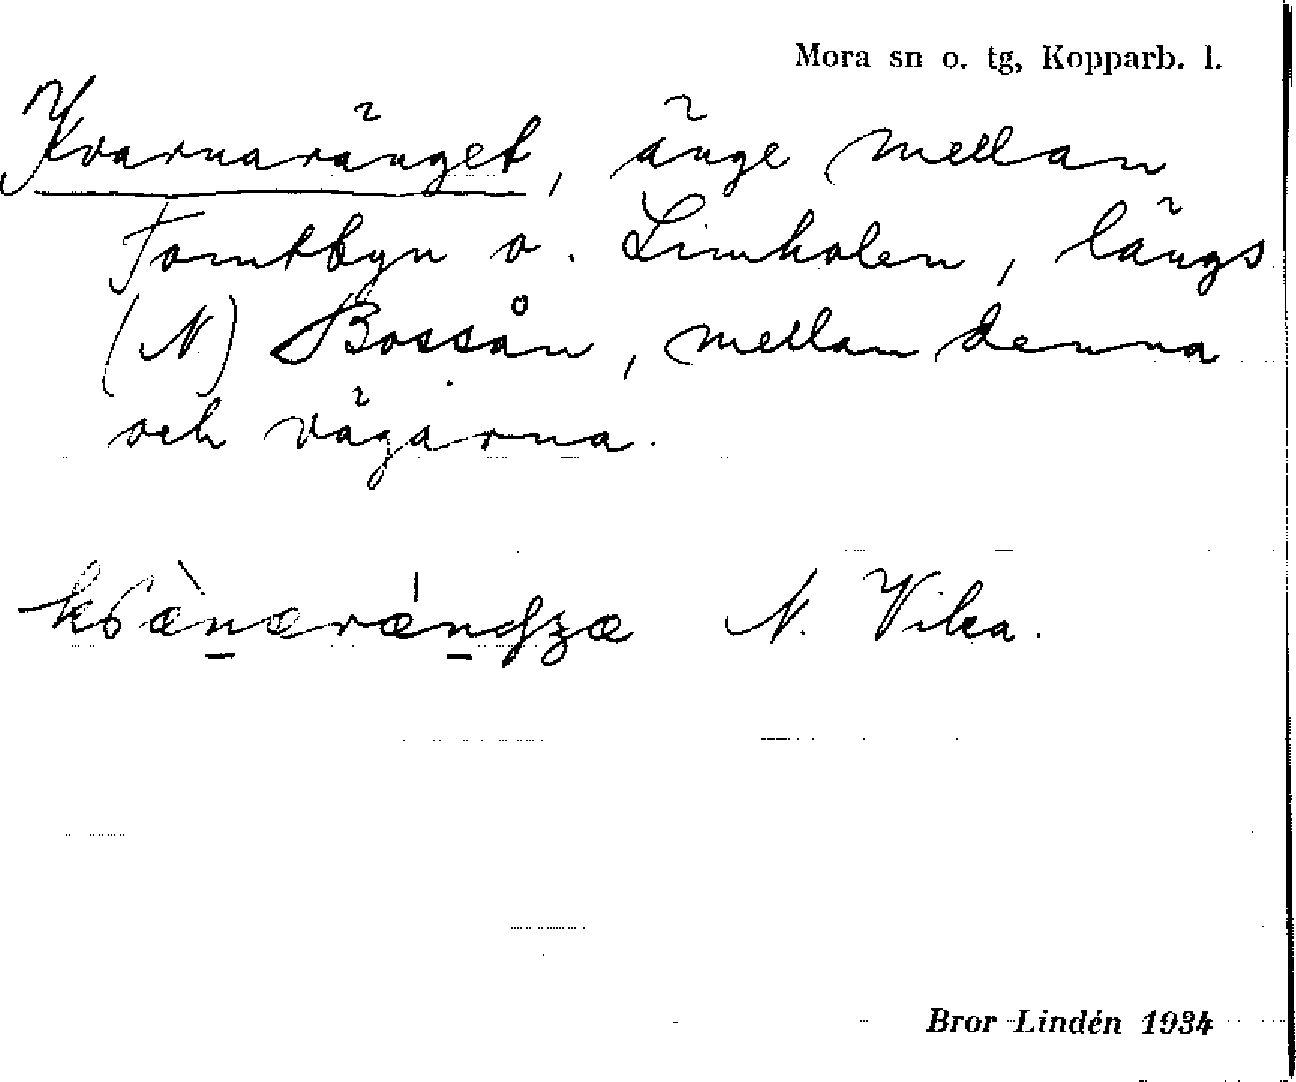 Mora sn o. tg, Kopparb. l.
Kvarnaränget, änge mellan
Tomtbyn o. Limholen, längs
(N) Bossån, mellan denna
och vägarna.
N. Vika.
Bror Lindén 1934